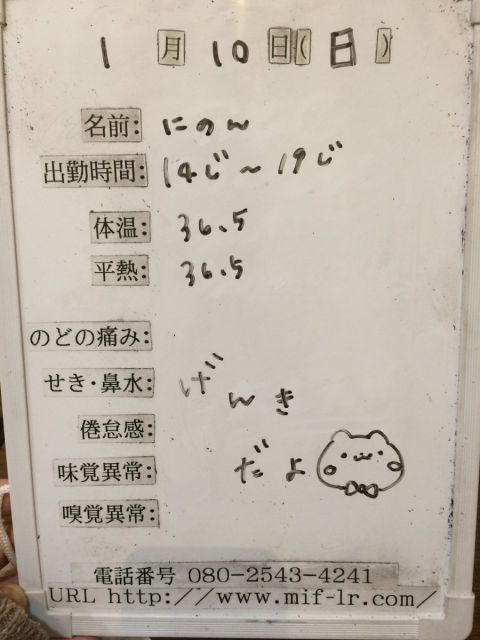 1月10日(日)
名前: にのん
出勤時間: 14じ~19じ
体温: 36.5
平熱: 36.5
のどの痛み:
せき・鼻水: げんき
倦怠感:
味覚異常: だよ
嗅覚異常:
電話番号 080-2543-4241
URL http://www.mif-lr.com/